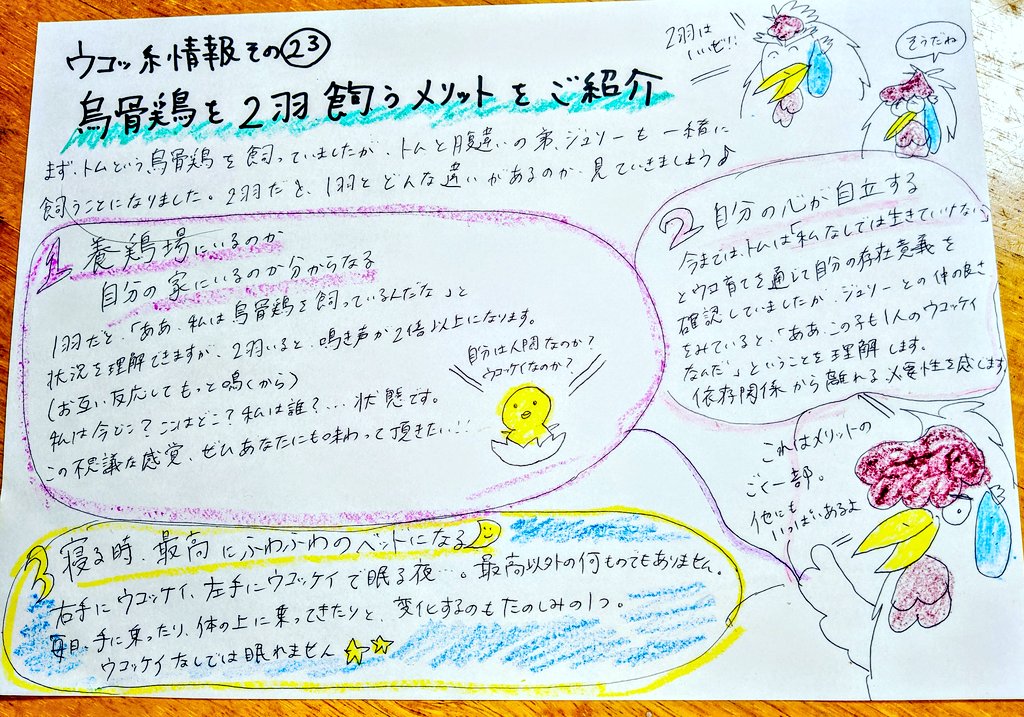 ウコッ系情報その㉓
烏骨鶏を2羽飼うメリットをご紹介
2羽は
いいぜ!!
そうだね
まず、トムという烏骨鶏を飼っていましたが、トムと腹違いの弟、ジェリーも一緒に
飼うことになりました。2羽だと、1羽とどんな違いがあるのか、見ていきましょう♪
1 養鶏場にいるのか
自分の家にいるのか分からなる
1羽だと、「ああ、私は烏骨鶏を飼っているんだな」と
状況を理解できますが、2羽いると、鳴き声が2倍以上になります。
(お互い反応してもっと鳴くから)
私は今どこ?ここはどこ?私は誰?…状態です。
この不思議な感覚、ぜひあなたにも味わって頂きたい!!
自分は人間なのか?
ウコッケイなのか?
2 自分の心が自立する
今までは、トムは「私なしでは生きていけない」
とウコ育てを通じて自分の存在意義を
確認していましたが、ジェリーとの仲の良さ
をみていると、「ああ、この子も1人のウコッケイ
なんだ」ということを理解します。
依存関係から離れる必要性を感じます
これはメリットの
ごく一部。
他にも
いっぱいあるよ
3 寝る時、最高にふわふわのベットになる
右手にウコッケイ、左手にウコッケイで眠る夜…。最高以外の何ものでもありません。
毎日、手に乗ったり、体の上に乗ってきたりと、変化するのもたのしみの1つ。
ウコッケイなしでは眠れません